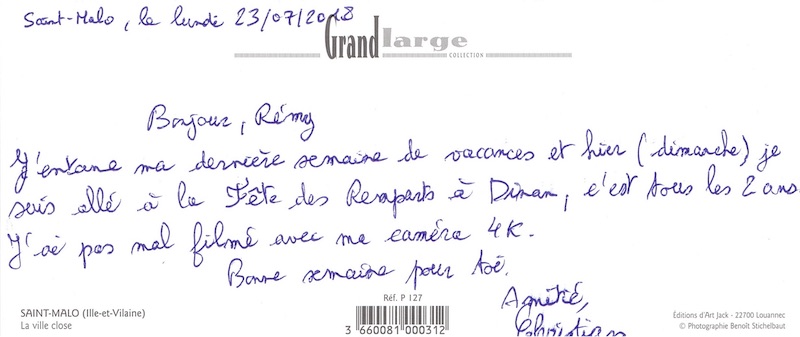 Saint-Malo, le lundi 23/07/2018
Grand large
COLLECTION
Bonjour, Rémy
J'entame ma dernière semaine de vacances et hier (dimanche) je
suis allé à la Fête des Remparts à Dinan, c'est tous les 2 ans.
J'ai pas mal filmé avec ma caméra 4K.
Bonne semaine pour toi.
Amitié,
Christian
SAINT-MALO (Ille-et-Vilaine)
La ville close
Réf. P 127
3 660081 000312
Éditions d'Art Jack - 22700 Louannec
© Photographie Benoît Stichelbaut